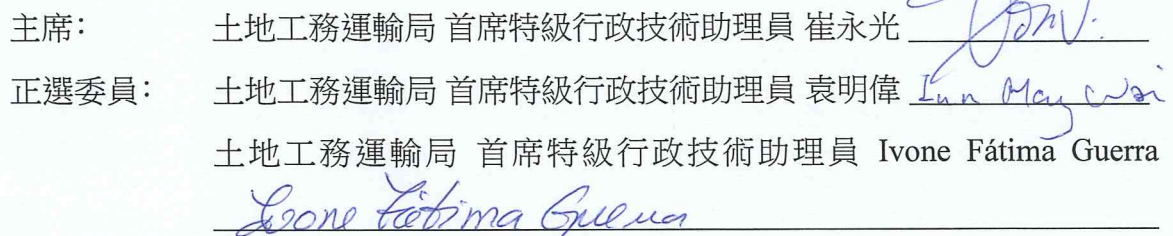 主席： 土地工務運輸局 首席特級行政技術助理員 崔永光
正選委員： 土地工務運輸局 首席特級行政技術助理員 袁明偉
土地工務運輸局 首席特級行政技術助理員 Ivone Fátima Guerra
Ivone Fátima Guerra